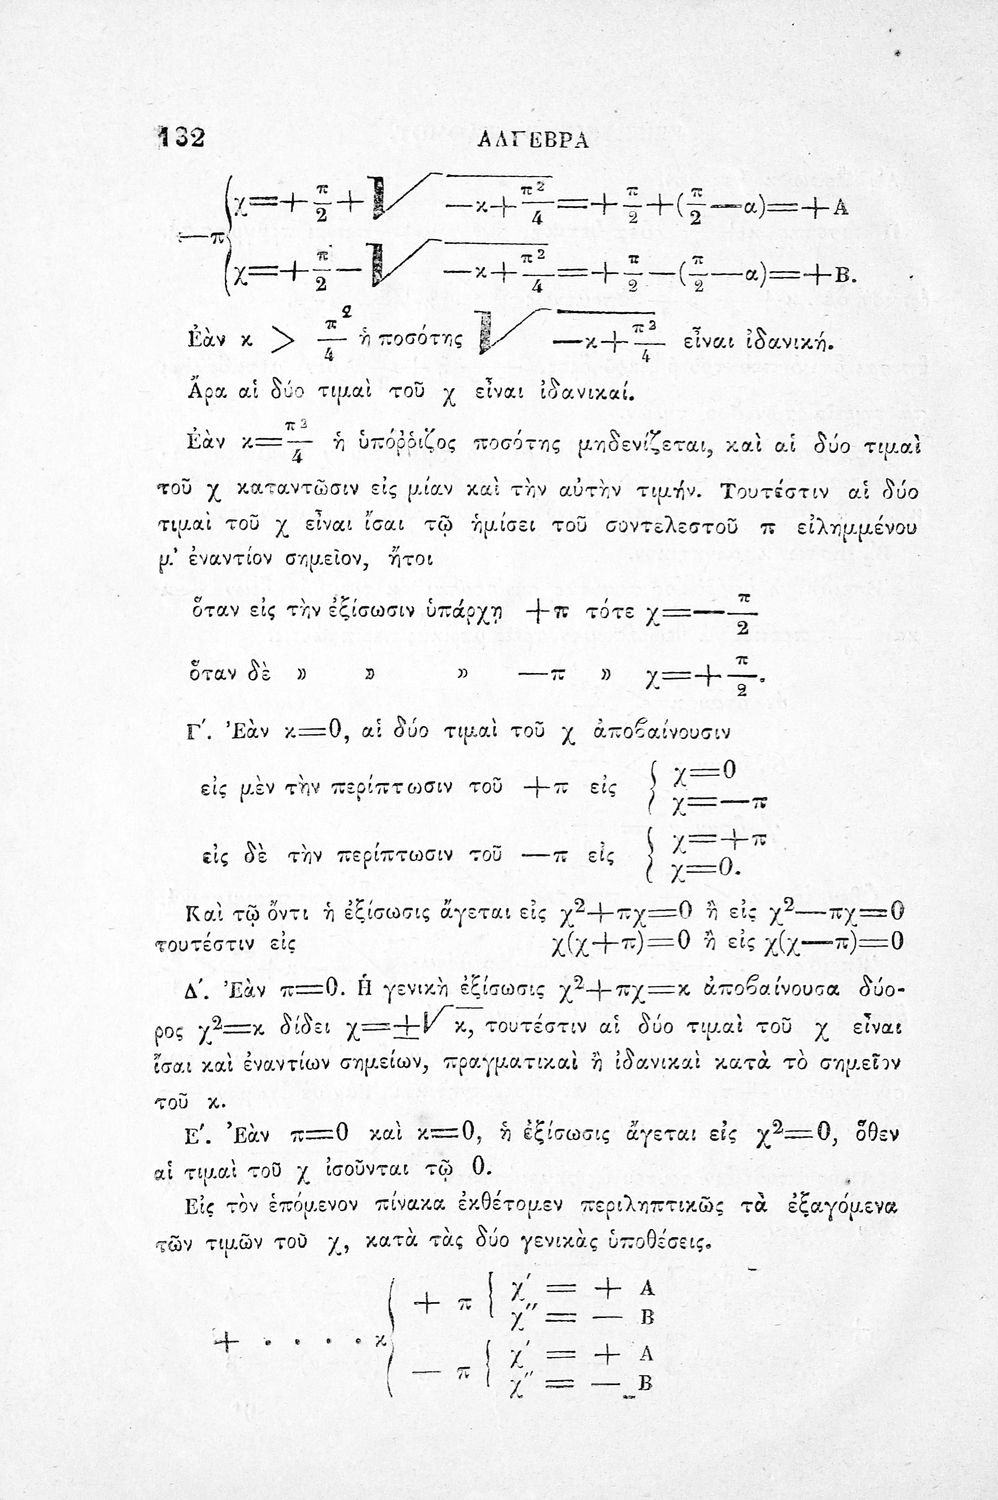 132 ΑΛΓΕΒΡΑ
—π { χ=+π/2+√(—κ+π²/4)=+π/2+(π/2—α)=+Α
χ=+π/2—√(—κ+π²/4)=+π/2—(π/2—α)=+Β.
Ἐὰν κ > π²/4 ἡ ποσότης √(—κ+π²/4) εἶναι ἰδανική.
Ἄρα αἱ δύο τιμαὶ τοῦ χ εἶναι ἰδανικαί.
Ἐὰν κ=π²/4 ἡ ὑπόῤῥιζος ποσότης μηδενίζεται, καὶ αἱ δύο τιμαὶ
τοῦ χ καταντῶσιν εἰς μίαν καὶ τὴν αὐτὴν τιμήν. Τουτέστιν αἱ δύο
τιμαὶ τοῦ χ εἶναι ἴσαι τῷ ἡμίσει τοῦ συντελεστοῦ π εἰλημμένου
μ' ἐναντίον σημεῖον, ἤτοι
ὅταν εἰς τὴν ἐξίσωσιν ὑπάρχῃ +π τότε χ=—π/2
ὅταν δὲ » » » —π » χ=+π/2.
Γ'. Ἐὰν κ=0, αἱ δύο τιμαὶ τοῦ χ ἀποβαίνουσιν
εἰς μὲν τὴν περίπτωσιν τοῦ +π εἰς { χ=0
χ=—π
εἰς δὲ τὴν περίπτωσιν τοῦ —π εἰς { χ=+π
χ=0.
Καὶ τῷ ὄντι ἡ ἐξίσωσις ἄγεται εἰς χ²+πχ=0 ἢ εἰς χ²—πχ=0
τουτέστιν εἰς χ(χ+π)=0 ἢ εἰς χ(χ—π)=0
Δ'. Ἐὰν π=0. Ἡ γενικὴ ἐξίσωσις χ²+πχ=κ ἀποβαίνουσα δύο-
ρος χ²=κ δίδει χ=±√κ, τουτέστιν αἱ δύο τιμαὶ τοῦ χ εἶναι
ἴσαι καὶ ἐναντίων σημείων, πραγματικαὶ ἢ ἰδανικαὶ κατὰ τὸ σημεῖον
τοῦ κ.
Ε'. Ἐὰν π=0 καὶ κ=0, ἡ ἐξίσωσις ἄγεται εἰς χ²=0, ὅθεν
αἱ τιμαὶ τοῦ χ ἰσοῦνται τῷ 0.
Εἰς τὸν ἑπόμενον πίνακα ἐκθέτομεν περιληπτικῶς τὰ ἐξαγόμενα
τῶν τιμῶν τοῦ χ, κατὰ τὰς δύο γενικὰς ὑποθέσεις.
+ π { χ' = + Α
χ'' = — Β
+ . . . . κ {
— π { χ' = + Α
χ'' = — Β